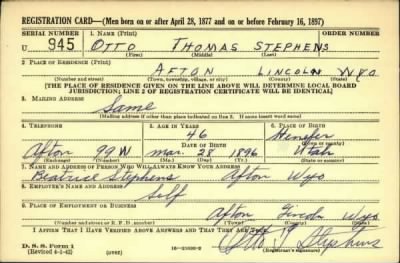 REGISTRATION CARD—(Men born on or after April 28, 1877 and on or before February 16, 1897)
SERIAL NUMBER 1. NAME (Print) ORDER NUMBER
U 945 OTTO THOMAS STEPHENS
(First) (Middle) (Last)
2. PLACE OF RESIDENCE (Print)
AFTON LINCOLN WYO
(Number and street) (Town, township, village, or city) (County) (State)
[THE PLACE OF RESIDENCE GIVEN ON THE LINE ABOVE WILL DETERMINE LOCAL BOARD
JURISDICTION; LINE 2 OF REGISTRATION CERTIFICATE WILL BE IDENTICAL]
3. MAILING ADDRESS
Same
[Mailing address if other than place indicated on line 2. If same insert word same]
4. TELEPHONE 5. AGE IN YEARS 6. PLACE OF BIRTH
46 Henefer
DATE OF BIRTH (Town or county)
Afton 99W Mar. 28 1896 Utah
(Exchange) (Number) (Mo.) (Day) (Yr.) (State or country)
7. NAME AND ADDRESS OF PERSON WHO WILL ALWAYS KNOW YOUR ADDRESS
Beatrice Stephens Afton Wyo
8. EMPLOYER'S NAME AND ADDRESS
Self
9. PLACE OF EMPLOYMENT OR BUSINESS
Afton Lincoln Wyo
(Number and street or R. F. D. number) (Town) (County) (State)
I AFFIRM THAT I HAVE VERIFIED ABOVE ANSWERS AND THAT THEY ARE TRUE.
D. S. S. Form 1
(Revised 4-1-42) (over) Otto T Stephens
(Registrant's signature)